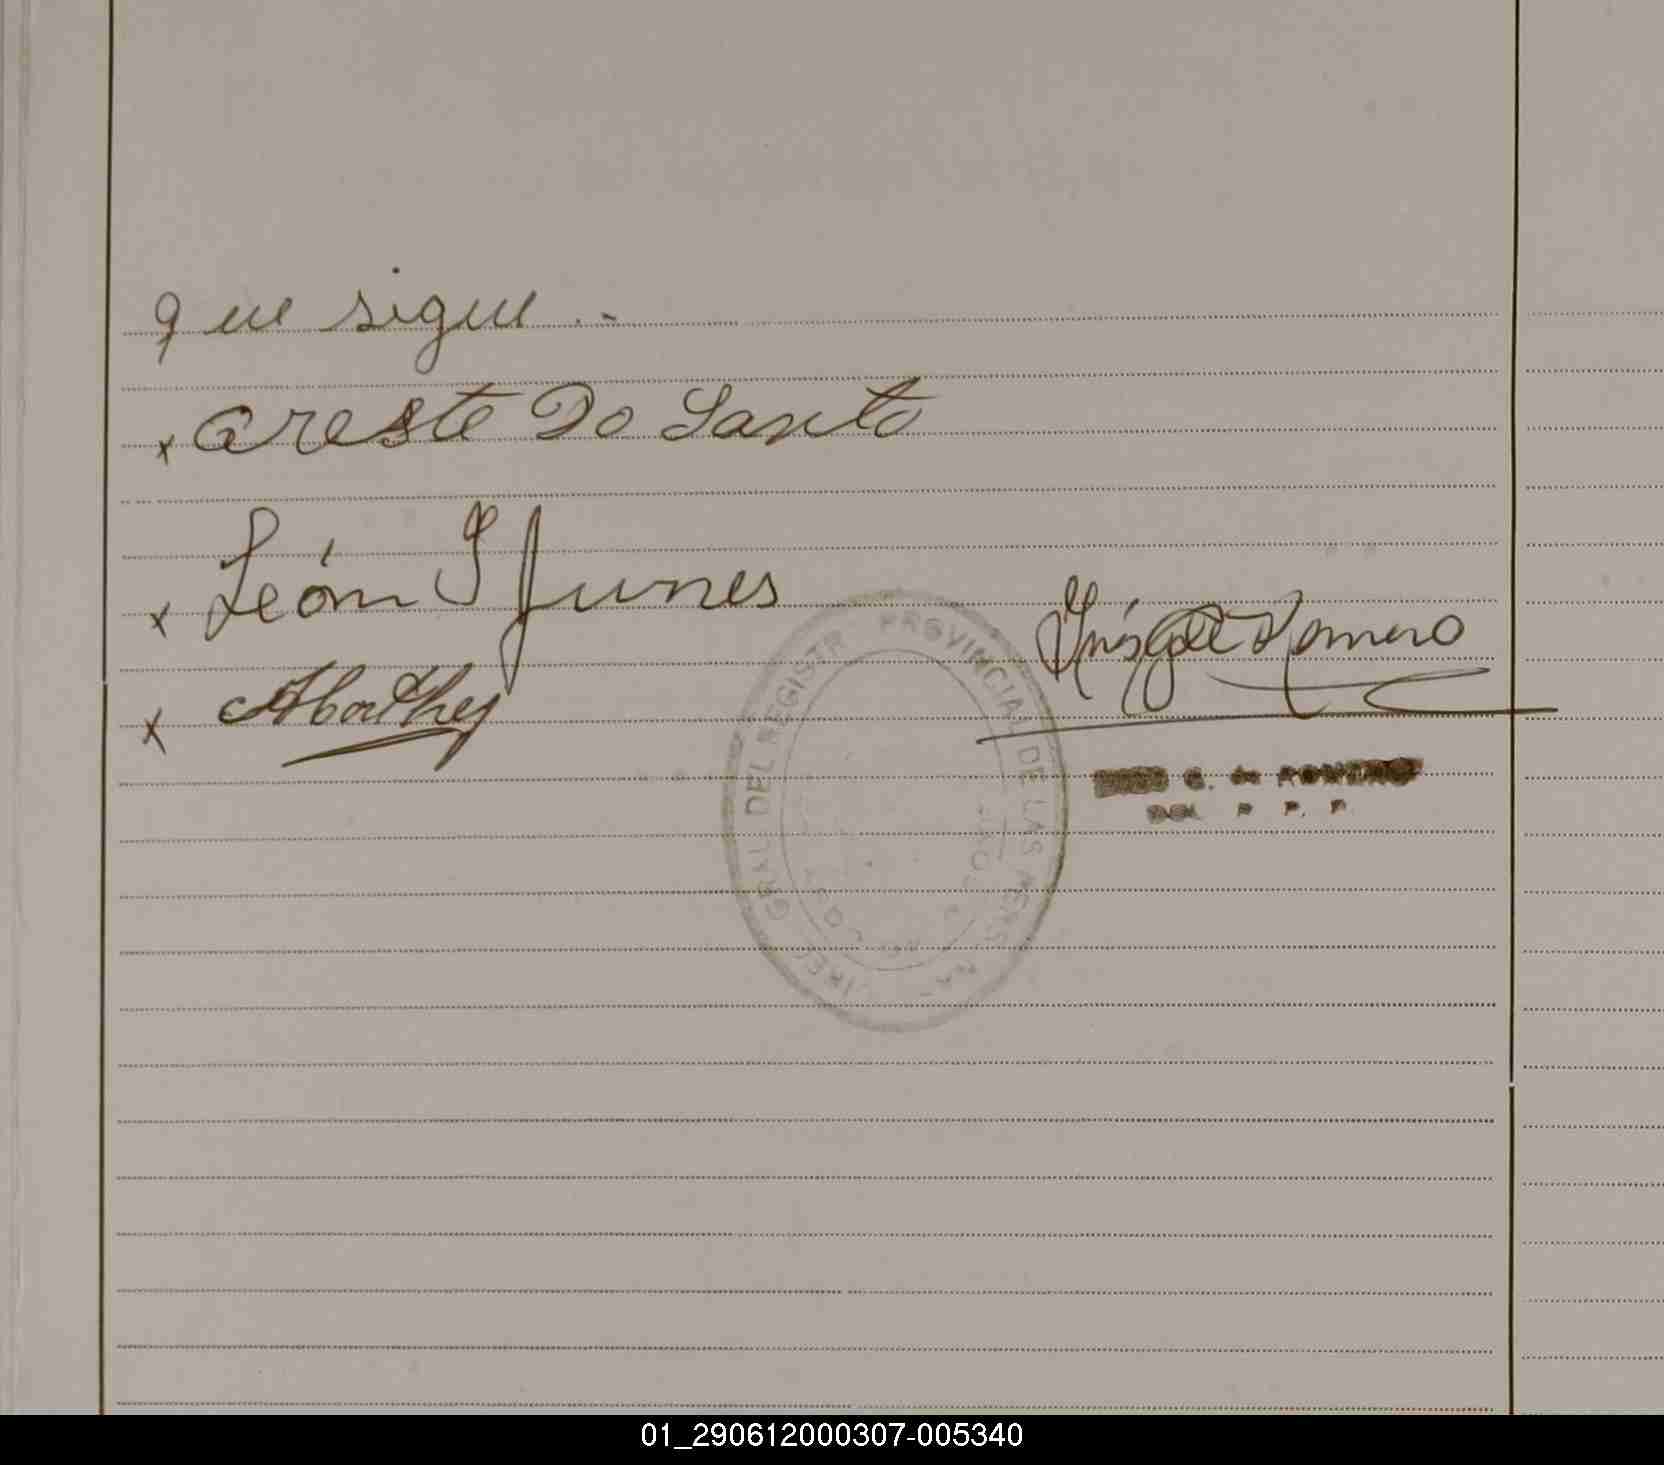 que sigue..-
x Oreste Do Santo
x León I Funes
x Abathey
Inés G de Romero
DIREC GRAL DEL REGISTR PROVINCIAL DE LAS PERS
C. de ROMERO
01_290612000307-005340